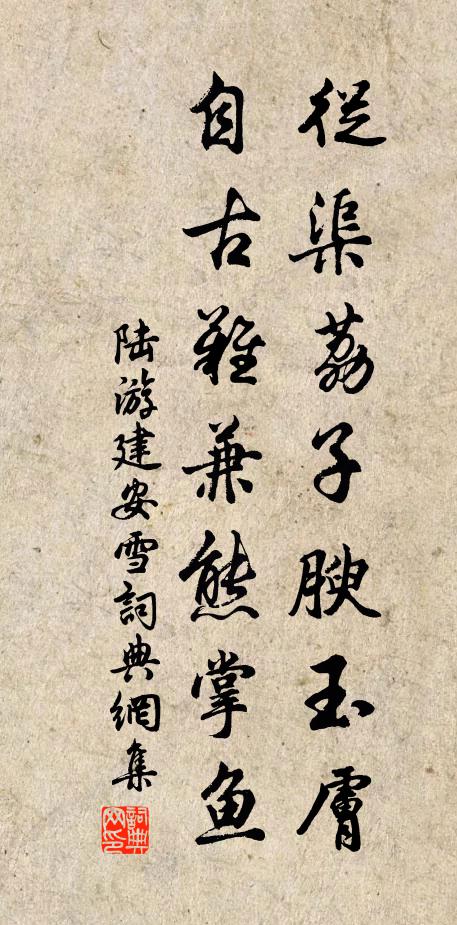 從渠荔子腴玉膚
自古難兼熊掌魚
陸游建安雪詞典網集
詞典網印